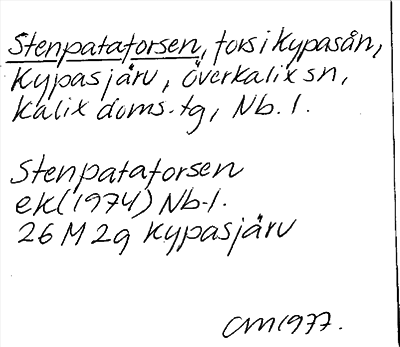 Stenpataforsen, fors i Kypasån,
Kypasjärv, Överkalix sn,
Kalix doms.tg, Nb. l.
Stenpataforsen
ek (1974) Nb.l.
26 M 2g Kypasjärv
CM 1977.